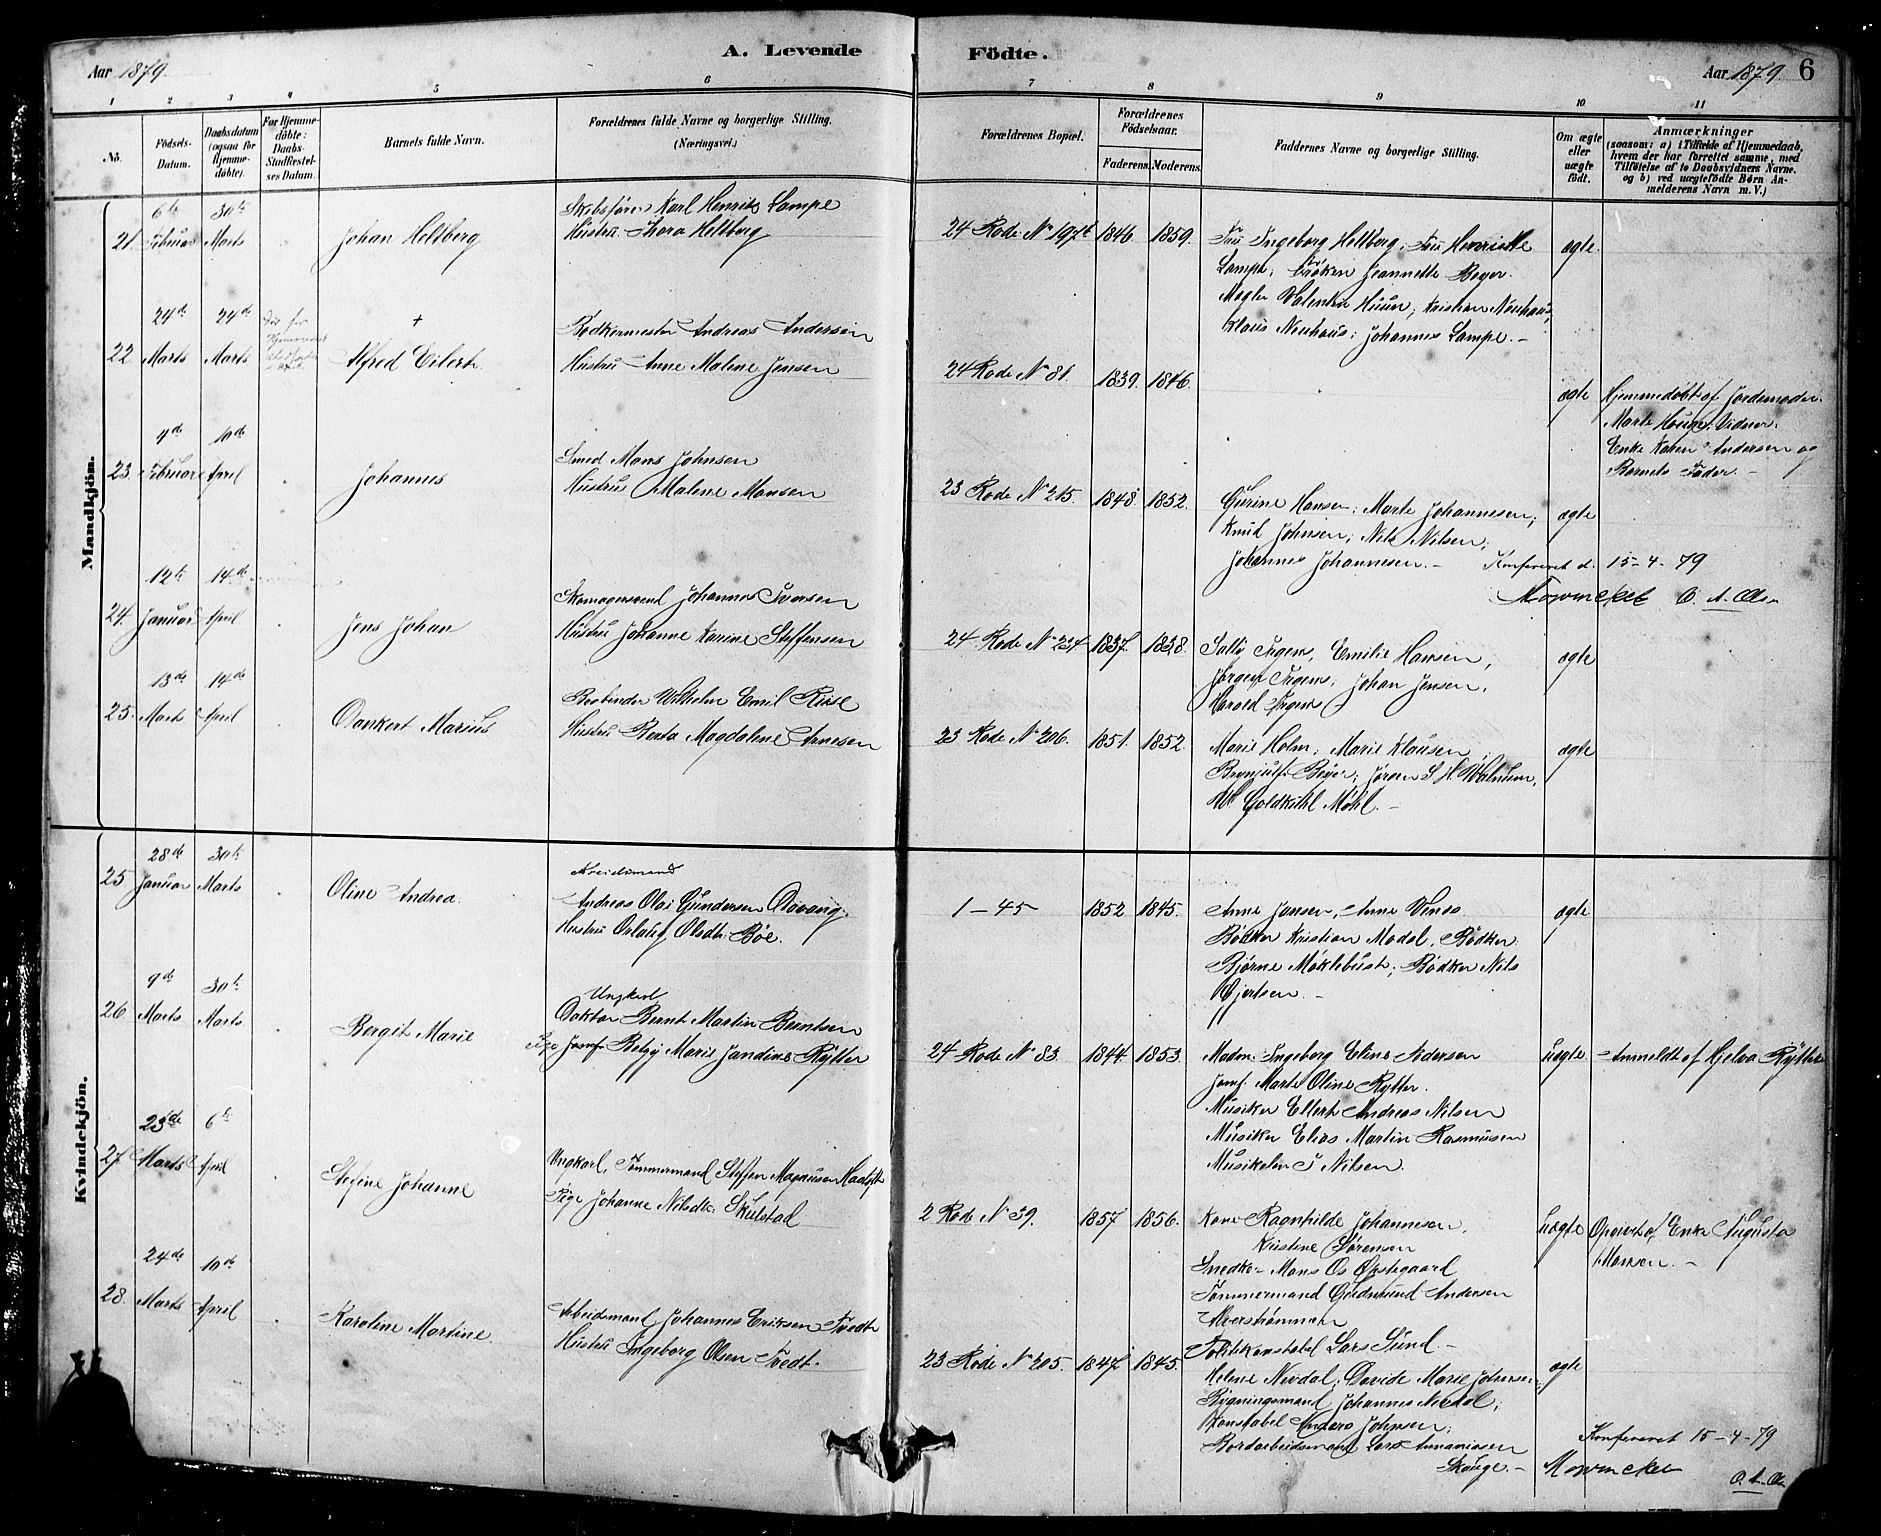 Aar 1879
A. Levende Födte.
Aar 1879. 6
1 2 3 4 5 6 7 8 9 10 11
No.
Födsels-Datum.
Daabsdatum (ogsaa for Hjemme-döbte).
For Hjemme-döbte: Daabs-Stadfæstel-ses Datum.
Barnets fulde Navn.
Forældrenes fulde Navne og borgerlige Stilling. (Næringsvei.)
Forældrenes Bopæl.
Forældrenes Födselsaar.
Faderens. Moderens.
Faddernes Navne og borgerlige Stilling.
Om ægte eller uægte födt.
Anmærkninger
(saasom: a) i Tilfælde af Hjemmedaab, hvem der har forrettet samme, med Tilföielse af to Daabsvidners Navne, og b) ved uægtefödte Börn An-melderens Navn m. V.)
Mandkjön.
21. 6te Februar 30te Marts
Johan Heltberg
Skibsfører Karl Henrik Lampe
Hustru Thora Heltberg
24 Rode No 197b 1846 1859.
Fru Ingeborg Heltberg, Fru Henriette
Lampe, Frøken Jeannette Beyer.
Mægler Valentin Huun, Kristian Neuhaus,
Klaus Neuhaus; Johannes Lampe.
ægte.
22 24de Marts 24de Marts
+
Alfred Eilert
Bødkermester Andreas Andersen
Hustru Anne Malene Jensen
24 Rode No 81. 1839. 1846.
ægte
Hjemmedøbt af Jordemoder
Marte Hauge. Vidner:
Enke Karen Andersen og
Barnets Fader.
23. 4de Februar 10de April
Johannes
Smed Mons Johnsen
Hustru Malene Monsen
23 Rode No 215. 1848. 1852.
Gurine Hansen; Marte Johannesen;
Knud Johnsen; Nils Nilsen;
Johannes Johannesen.
ægte
Konfereret d. 15-4-79
Mowinckel O. A. Olsen
24. 12te Januar 14de April
Jens Johan
Skomagersvend Johannes Iversen
Hustru Johanne Karine Steffensen
24. Rode No 234 1837. 1838.
Sally Irgens, Emilie Hansen,
Jørgen Irgens; Johan Jensen,
Harald Irgens
ægte
25. 13de Marts 14de April
Dankert Marius
Bogbinder Wilhelm Emil Riise
Hustru Berta Magdalene Arnesen
23 Rode No 206. 1851. 1852.
Marie Holm; Marie Klausen
Brynjulf Beyer; Jørgen S. H. Walnum,
Goldkuhl Møhl.
ægte
Kvindekjön.
25 28de Januar 30te Marts
Oline Andrea.
Arbeidsmand
Andreas Olai Gundersen
Hustru Oslaug Olsdtr. Bøe.
1 - 45 1852 1845.
Anne Jansen, Anne Vines.
Bødker Kristian Modal, Bødker
Bjørne Møklebust; Bødker Nils
Gjertsen.
ægte
26 9de Marts 30te Marts
Bergit Marie
Ungkarl
Doktor Bernt Martin Berntsen
Pige Jomf. Betzy Marie Jandine Rytter
24 Rode No 83. 1844 1853.
Madm. Ingeborg Eline Andersen
Jomf. Marte Oline Rytter.
Musiker Ellert Andreas Nilsen
Musiker Elias Martin Rasmusen
Nilsen.
Uægte
Anmeldt af Helva Rytter
27 23de Marts 6te April
Stefine Johanne
Ungkarl, Tømmermand Steffen Magnusen
Pige Johanne Nilsdtr. Skulstad
2 Rode No 39. 1857 1856.
Kone Ragnhilde Johannesen,
Kristine Sørensen
Snedker Mons Opstegaard
Tømmermand Gudmund Andersen
Alverstrømmen
Politikonstabel Lars Sund
Uægte
Opgivet af Enke Augusta
Monsen.
28. 24de Marts 10de April
Karoline Martine.
Arbeidsmand Johannes Eriksen Tvedt
Hustru Ingeborg Olsen Tvedt.
23 Rode No 205. 1847. 1845.
Helene Nevdal; Davide Marie Johnsen;
Bygningsmand Johannes Nevdal;
Konstabel Anders Johnsen;
Bordarbeidsmand Lars Annaniasen
Skauge.
ægte
Konfereret 15-4-79
Mowinckel O. A. Olsen